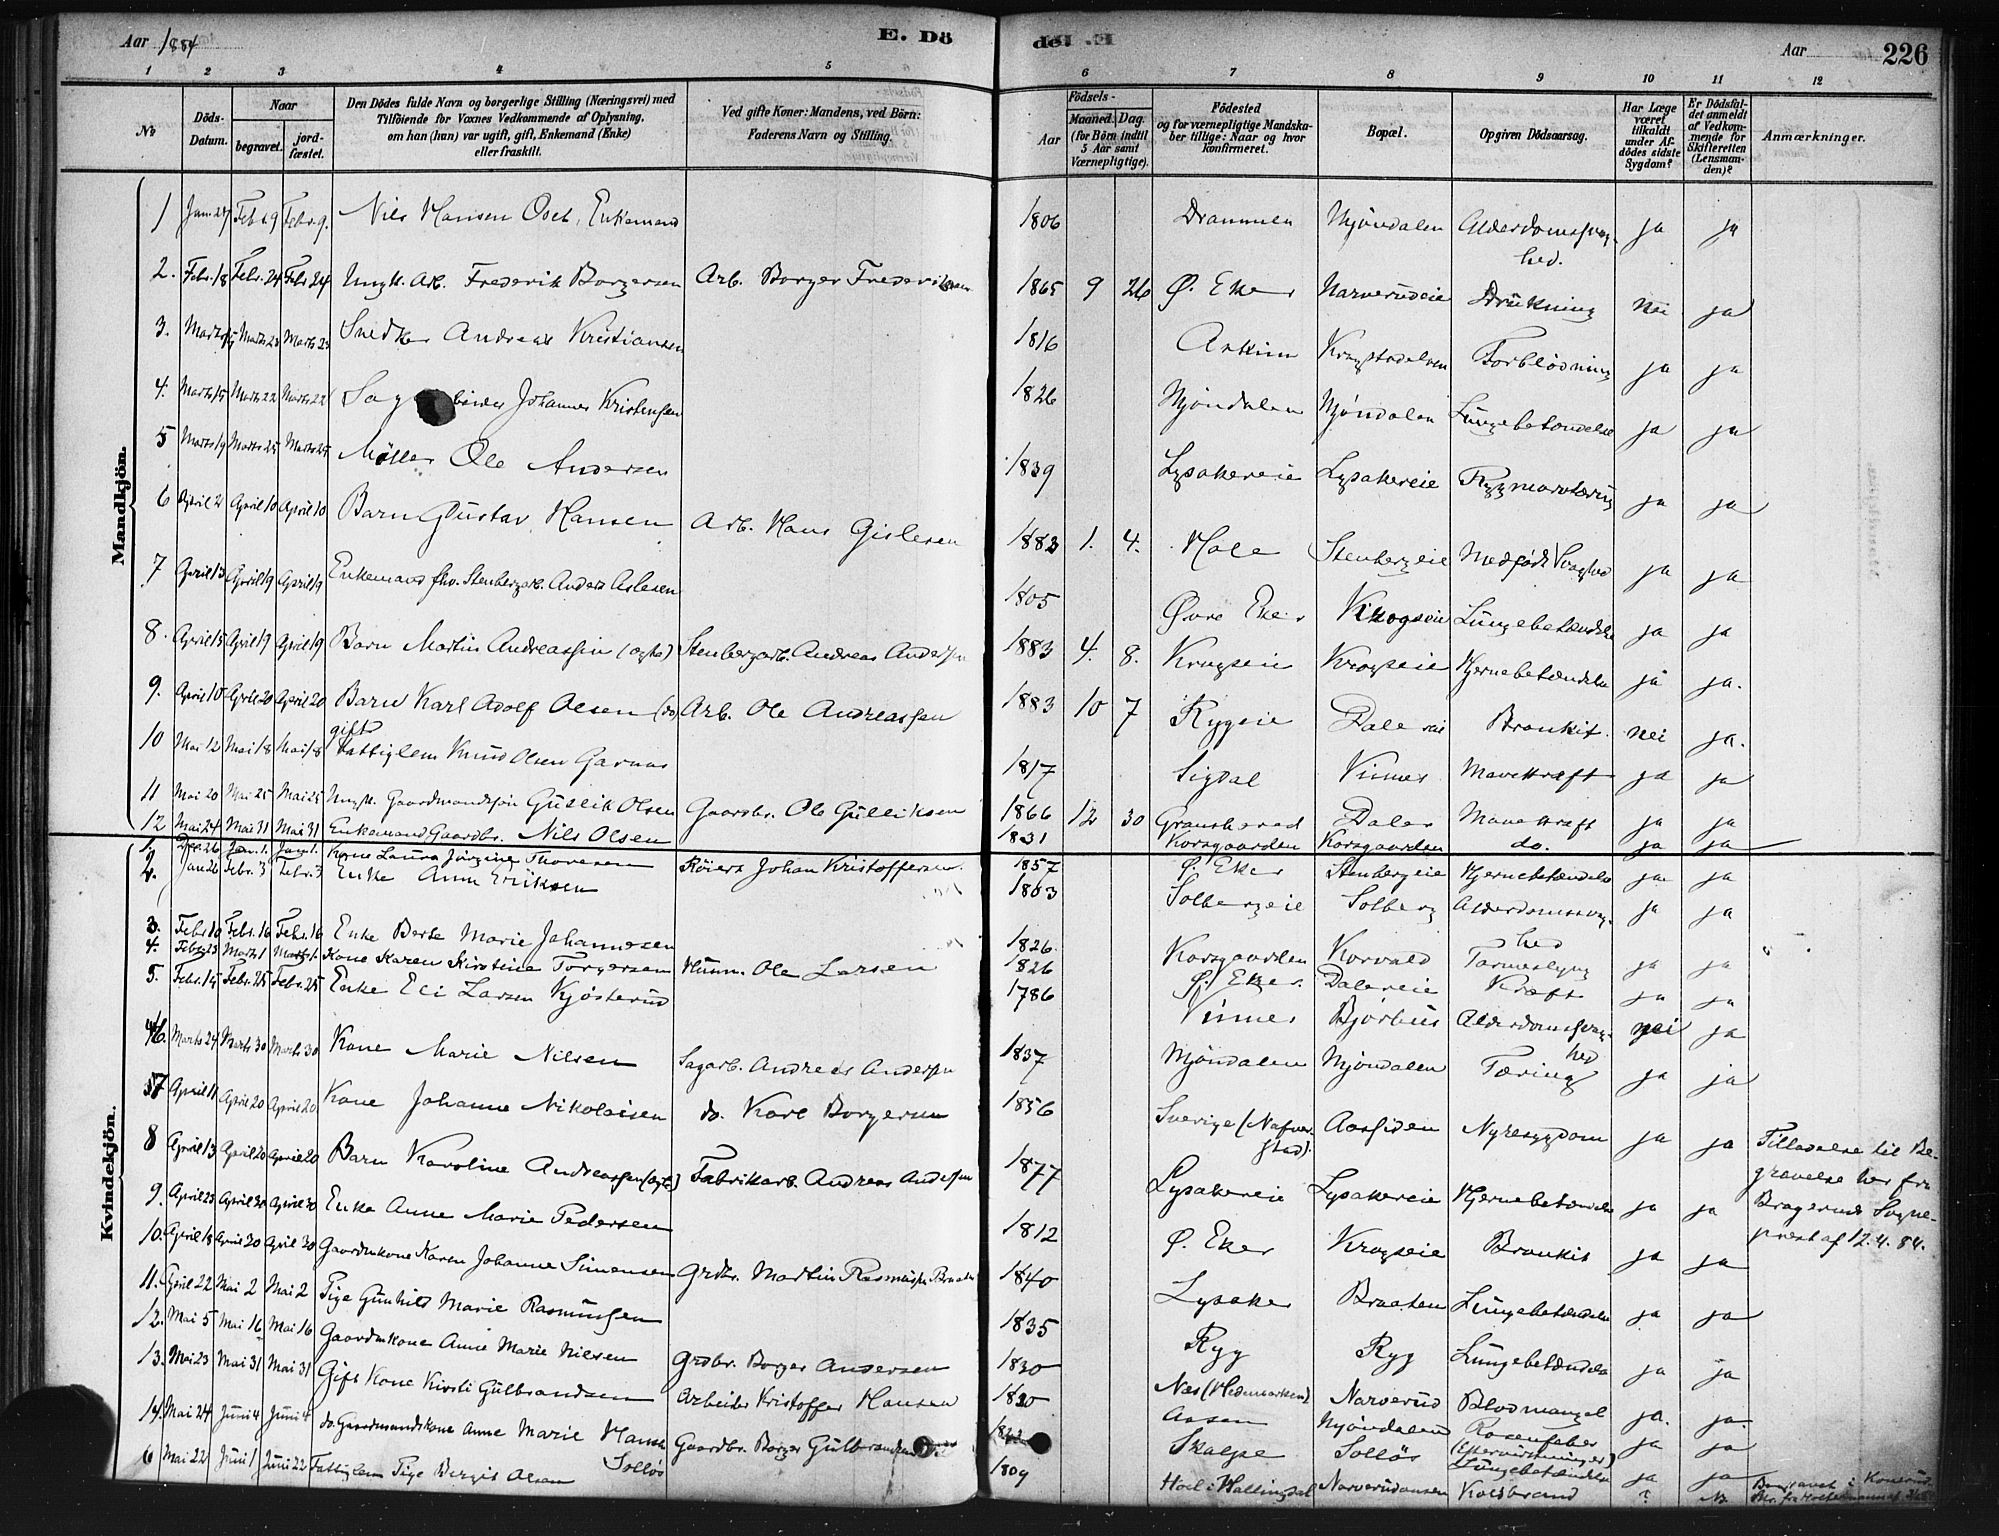 Aar 1884
E. Dö
de. E.
Aar
226
1 2 3 4 5 6 7 8 9 10 11 12
No
Döds-Datum.
Naar
begravet.
jord-fæstet.
Den Dödes fulde Navn og borgerlige Stilling (Næringsvei) med
Tilföiende for Voxnes Vedkommende af Oplysning,
om han (hun) var ugift, gift, Enkemand (Enke)
eller fraskilt.
Ved gifte Koner: Mandens, ved Börn:
Faderens Navn og Stilling.
Födsels-
Aar
Maaned. Dag.
(for Börn indtil 5 Aar samt Værnepligtige).
Födested
og for værnepligtige Mandska-
ber tillige: Naar og hvor
konfirmeret.
Bopæl.
Opgiven Dödsaarsag.
Har Læge været tilkaldt under Af-dödes sidste Sygdom?
Er Dödsfal-det anmeldt af Vedkom-mende for Skifteretten (Lensman-den)?
Anmærkninger.
Mandkjön.
1 Jan. 27 Febr. 9 Febr. 9. Nils Hansen Enkemand 1806 Drammen Mjöndalen Alderdomssvag-hed. ja ja
2. Febr. 18 Febr. 24 Febr 24 Ungk. Arb. Frederik Borgersen Arb. Borger Frederiksen 1865 9 26 Ø. Eker Narverudeie Drukning Nei ja
3. Marts 15 Marts 23 Marts 23 Snedker Andreas Kristiansen 1816 Askim Forblödning ja ja
4. Marts 15 Marts 22 Marts 22 Sag beider Johannes Kristensen 1826 Mjöndalen Mjöndalen Lungebetændelse ja ja
5 Marts 19 Marts 25 Marts 25 Möller Ole Andersen 1839 Lysakereie Lysakereie Rygmarvtæring ja ja
6 April 2 April 10 April 10 Barn Gustav Hansen Arb. Hans Gislesen 1883 1. 4. Hole Stenbergeie Medfødt Svaghed ja ja
7 April 13 April 19 April 19 Enkemand fhv. Stenbergarb. Anders Aslesen 1805 Øvre Eker Krogseie Lungebetændelse ja ja
8. April 15 April 19 April 19 Barn Martin Andreassen (ægte) Stenbergarb. Andreas Andersen 1883 4. 8. Krogseie Krogseie Hjernebetændelse ja ja.
9. April 10 April 20 April 20 Barn Karl Adolf Olsen (do) Arb. Ole Andreassen 1883 10 7 Rygeie Dale eie Bronkit. nei ja.
10 Mai 12 Mai 18 Mai 18 gift Fattiglem Knud Olsen Garnaas 1817 Sigdal Vinnes Mavekræft ja ja
11 Mai 20 Mai 25 Mai 25 Ungk. Gaardmandssön Gullik Olsen Gaardbr. Ole Gulliksen 1866 12 30 Gransherad Daler Mavekræft ja ja
12 Mai 24 Mai 31 Mai 31 Enkemand Gaardbr. Nils Olsen 1831 Korsgaarden Korsgaarden do. ja ja
Kvindekjön.
1. Dec. 26 Jan. 1. Jan. 1. Kone Laura Jörgine Thoresen Röiert Johan Kristoffersen. 1857 Ø. Eker Stenbergeie Hjernebetændelse ja ja
2. Jan 26 Febr. 3 Febr. 3 Enke Anne Eriksen 1803 Solbergeie Solberg Alderdomssvag-hed ja ja
3. Febr 10 Febr. 16 Febr. 16 Enke Berte Marie Johannesen 1826 Korsgaarden Korvald Tarmeslyng ja ja
4. Febr 23 Marts 1 Marts 1. Kone Karen Kirstine Torgersen Husm. Ole Larsen 1826 Ø. Eker. Dalereie Kræft ja ja
5. Febr. 15 Febr. 25 Febr. 25 Enke Eli Larsen Kjösterud 1786 Vinnes Bjørhus Alderdomssvag-hed nei ja
6. Marts 24 Marts 30 Marts 30 Kone Marie Nilsen Sagarb. Andreas Andersen 1837 Mjöndalen Mjöndalen Tæring ja ja
7 April 11 April 20 April 20 Kone Johanne Nikolaisen do. Karl Borgersen 1856 Sverige (Nafver-stad). Aassiden Nyresygdom ja ja Tilladelse til Be-gravelse her fra Bragernes Sogne-prest af 12.4.84.
8 April 13 April 20 April 20 Barn Karoline Andreassen (ægte) Fabrikarb. Andreas Andersen 1877 Lysakereie Lysakereie Hjernebetændelse ja ja
9. April 23 April 30 April 30 Enke Anne Marie Pedersen 1812 Ø. Eker Krogseie Bronkit ja ja
10. April 18 April 30 April 30 Gaardmkone Karen Johanne Simensen Grdbr. Martin Rasmussen Braaten 1840 Lysaker Braaten Lungebetændelse ja ja
11. April 22 Mai 2 Mai 2 Pige Gunhild Marie Rasmussen 1835 Ryg Ryg Lungebetændelse ja ja
12. Mai 5 Mai 16 Mai 16 Gaardmkone Anne Marie Nielsen Grdbr. Borger Andersen 1830 Næs (Hedemarken) Narverud Blodmangel ja. ja.
13. Mai 23 Mai 31 Mai 31 Gift Kone Kirsti Gulbrandsen Arbeider Kristoffer Hansen 1830 Aasen Mjöndalen Rosenfeber (Eftervirkninger) ja ja
14. Mai 24 Juni 4 Juni 4 do. Gaardmandskone Anne Marie Hansen Solløs Gaardbr. Borger Gulbrandsen Solløs Lungebetændelse ja ja
6 Mai 22 Juni 1 Juni 22 Fattiglem Pige Bergit Olsen 1809 Hoel i Hallingdal Narverudaasen Koldbrand ?